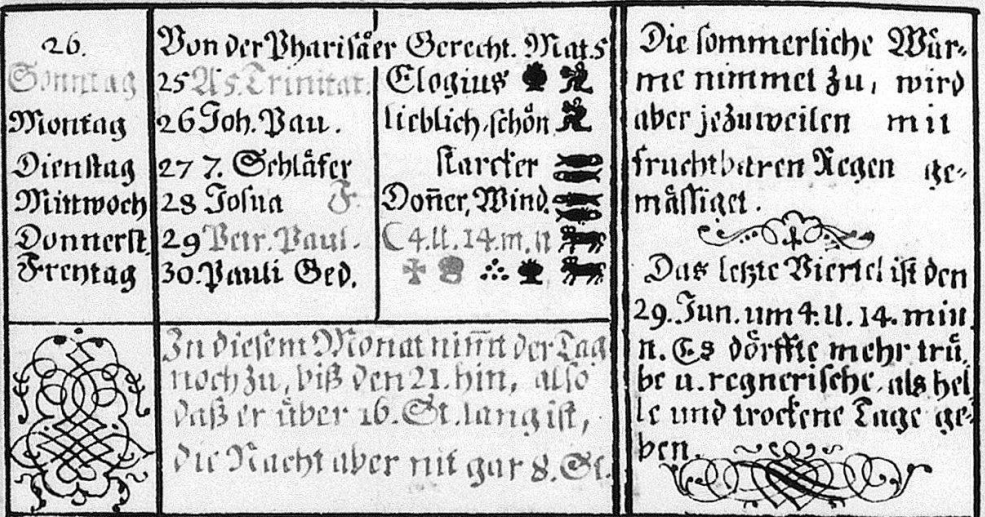 26. Von der Pharisäer Gerecht. Mat. 5
Sonntag 25 A 5. Trinitat. Elogius
Montag 26 Joh. Pau. lieblich-schön
Dienstag 27 7. Schläfer starcker
Mittwoch 28 Josua F. Don̄er, Wind.
Donnerst. 29 Petr. Paul. ☾ 4. U. 14. m. n
Freytag 30. Pauli Ged.
In diesem Monat nim̄t der Tag
noch zu, biß den 21. hin, also
daß er über 16. St. lang ist,
die Nacht aber nit gar 8. St.
Die sommerliche Wär-
me nimmet zu, wird
aber jezuweilen mit
fruchtbaren Regen ge-
mässiget.
Das letzte Viertel ist den
29. Jun. um 4. U. 14. min.
n. Es dörffte mehr trü-
be u. regnerische, als hel-
le und trockene Tage ge-
ben.